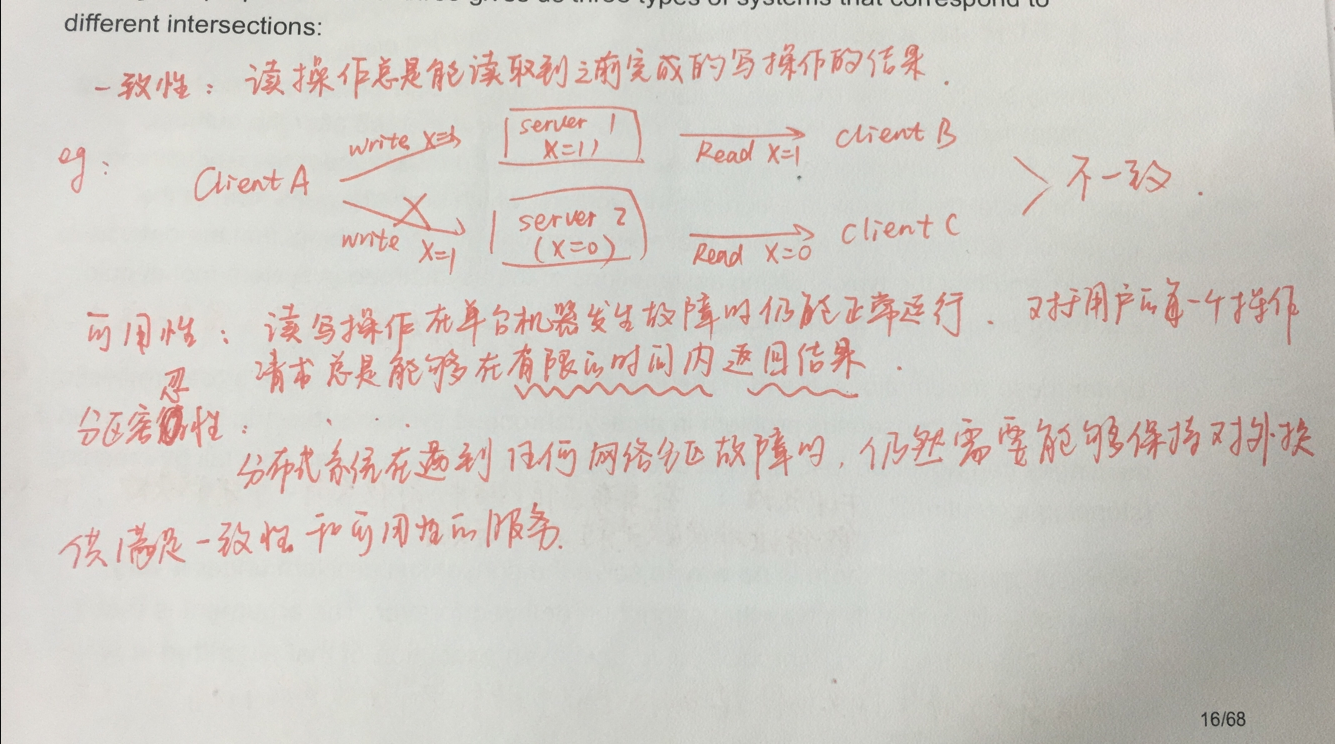 different intersections:
一致性：读操作总是能读取到之前完成的写操作的结果.
eg:
Client A
write X=1
server 1
X=1)
Read X=1
client B
write X=1
server 2
(X=0)
Read X=0
client C
不一致.
可用性：读写操作在单台机器发生故障时仍能正常运行. 对于用户的每一个操作
请求总是能够在有限的时间内返回结果.
忍
分区容 性：
分布式系统在遇到任何网络分区故障时，仍然需要能够保持对外提
供满足一致性和可用性的服务.
16/68